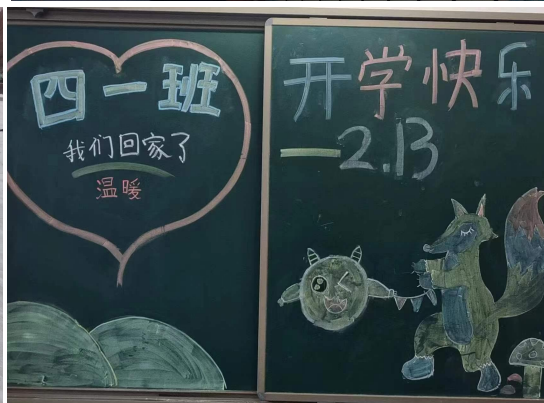 四一班
我们回家了
温暖
开学快乐
—2.13